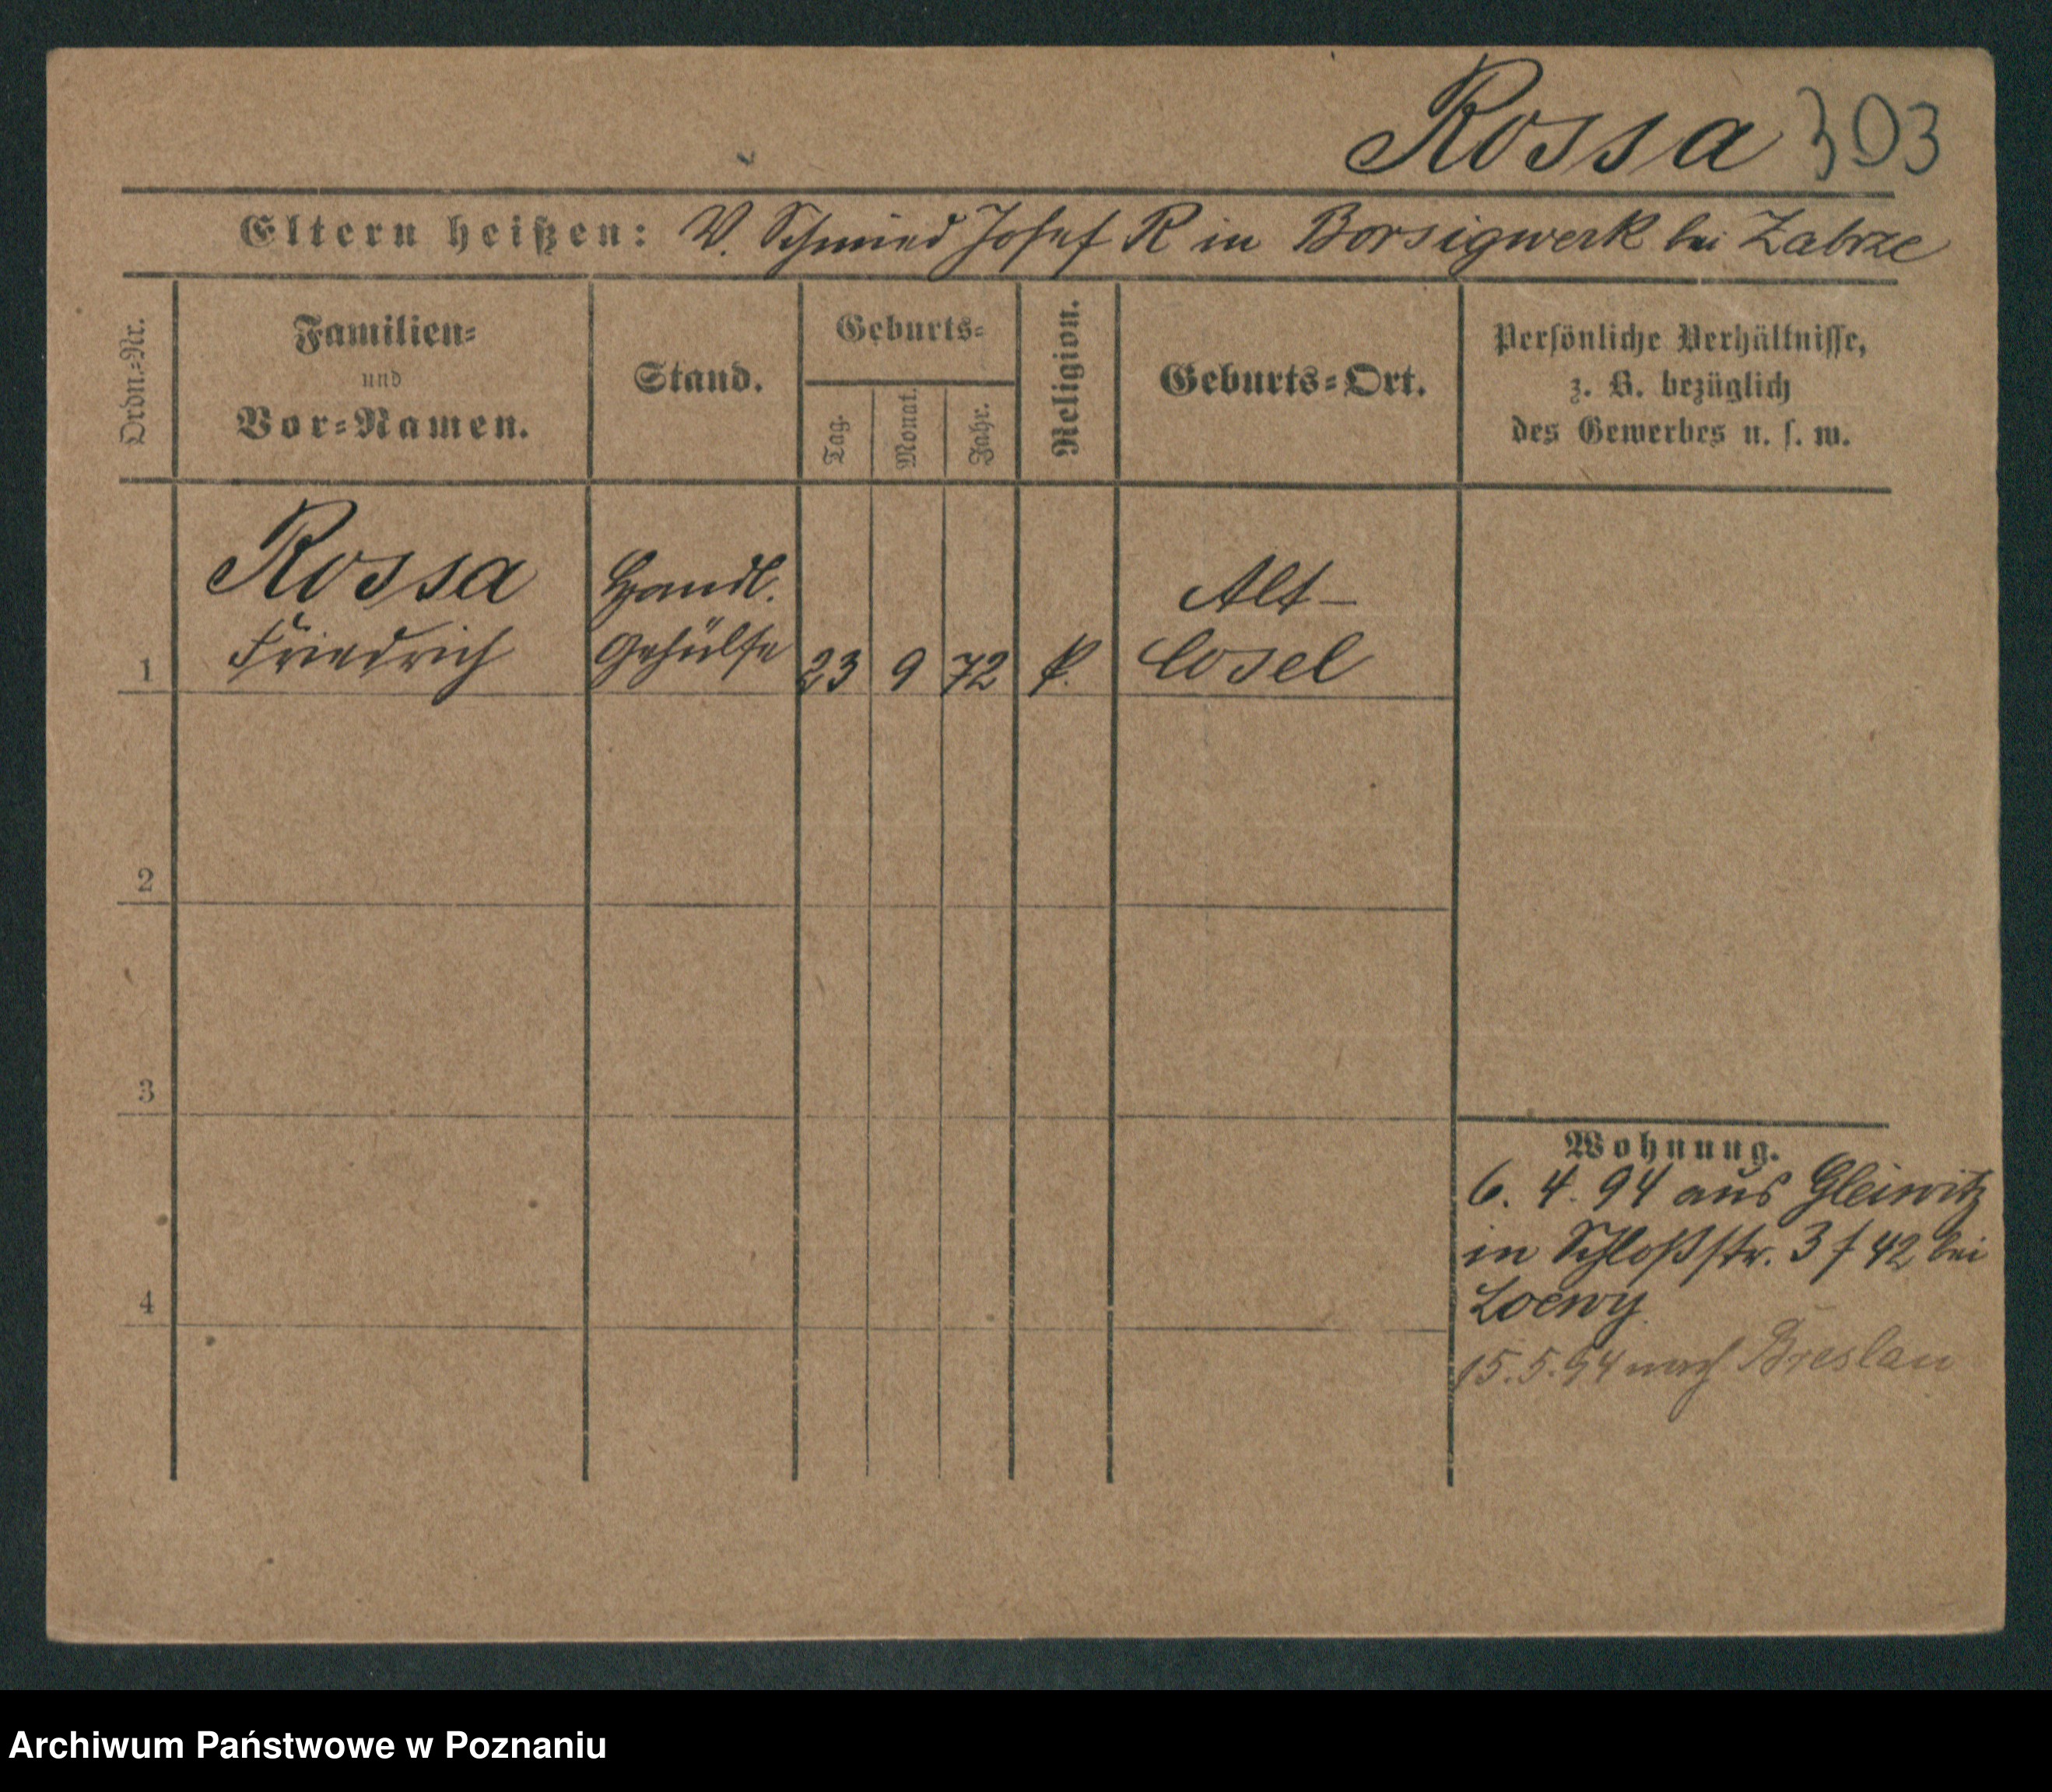 Rossa 303
Eltern heißen: V. Schmied Josef R in Borsigwerk bei Zabrze
Ordn.-Nr.
Familien-
und
Vor-Namen.
Stand.
Geburts-
Tag.
Monat.
Jahr.
Religion.
Geburts-Ort.
Persönliche Verhältnisse,
z. B. bezüglich
des Gewerbes u. s. w.
Rossa Handl. Alt-
1 Friedrich Gehülfe 23 9 72 k. Cosel
2
3
Wohnung.
6. 4. 94 aus Gleiwitz
in Schloßstr. 3 f 42 bei
4 Loewy
15. 5. 94 nach Breslau
Archiwum Państwowe w Poznaniu